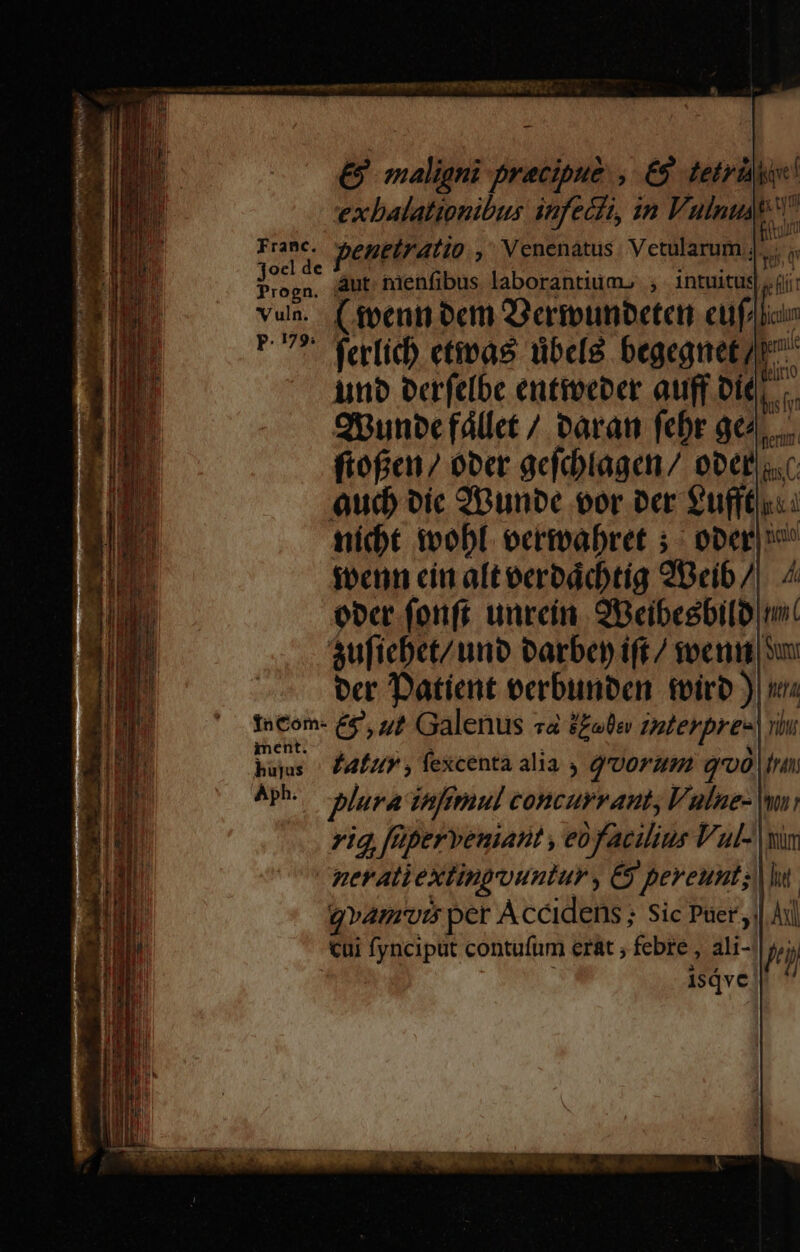 & maligni præcipuè, & tetrà
exhalationibus infecti, in Vulnus
Franc. Joel de Progn. Vuln. p. 179.
penetratio, Venenatus Vetularum,
aut menſibus laborantium, intuitus
(wenn dem Verwundeten euſ-
ſerlich etwas übels begegnet /
und derſelbe entweder auff die
Wunde fället / daran ſehr ge-
ſtoßen / oder geſchlagen / oder
auch die Wunde vor der Lufft
nicht wohl verwahret ; oder
wenn ein alt verdächtig Weib /
oder ſonſt unrein Weibesbild
zuſiehet / und darbey iſt / wenn
der Patient verbunden wird )
In Comment. hujus Aph.
&, ut Galenus τὰ ἔξωθεν interpre-
tatur, ſexcenta alia, qvorum qvò
plura inſimul concurrant, Vulne-
ri q, ſuperveniant, eò facilius Vul-
nerati extingvuntur, & pereunt;
qvamvis per Accidens; Sic Puer,
cui ſynciput contuſum erat, febre, ali-
isqve